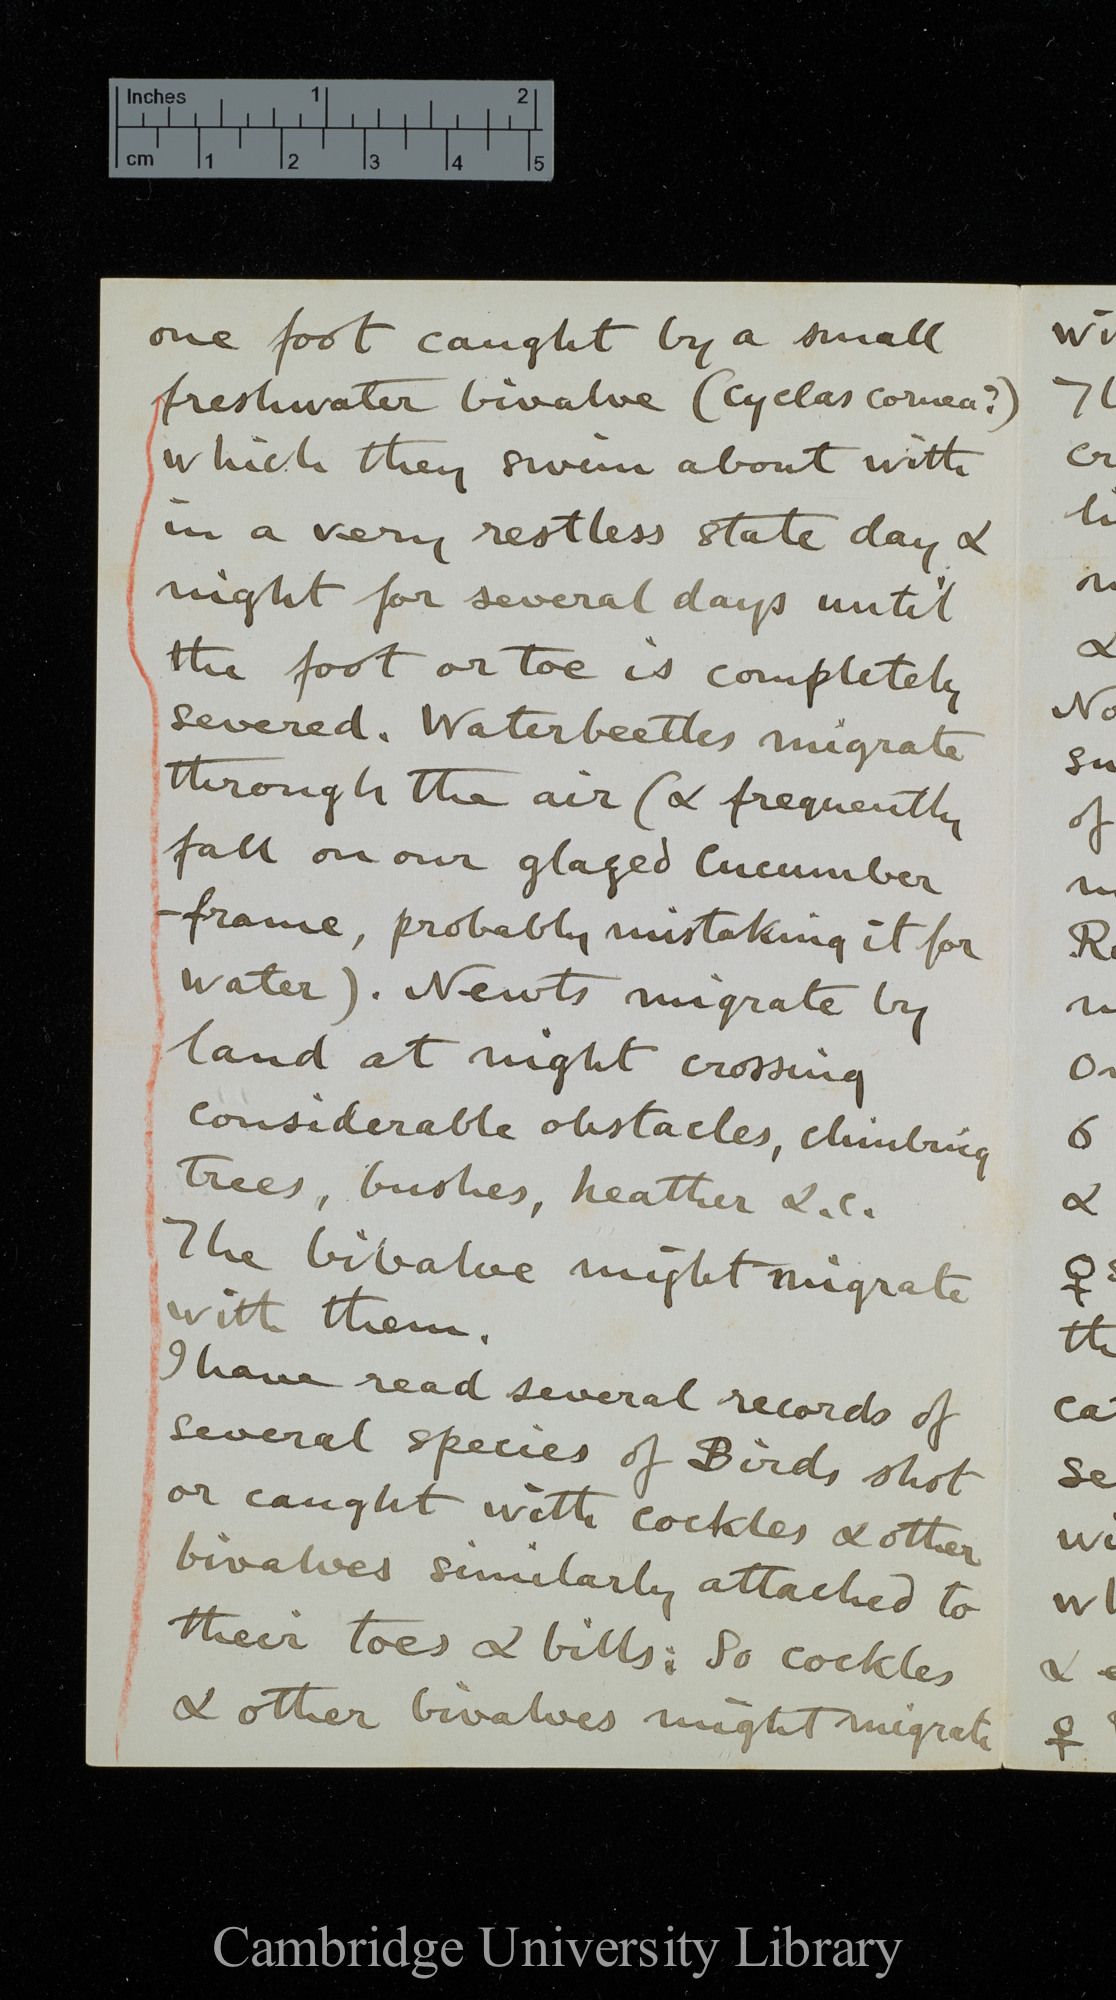 Inches 1 2
cm 1 2 3 4 5
one foot caught by a small
freshwater bivalve (Cyclas cornea?)
which they swim about with
in a very restless state day &
night for several days until
the foot or toe is completely
severed. Waterbeetles migrate
through the air (& frequently
fall on our glazed Cucumber
-frame, probably mistaking it for
water). Newts migrate by
land at night crossing
considerable obstacles, climbing
trees, bushes, heather &.c.
The bivalve might migrate
with them.
I have read several records of
several species of Birds shot
or caught with cockles & other
bivalves similarly attached to
their toes & bills: So cockles
& other bivalves might migrate
of
6
&
♀
&
♀
Cambridge University Library